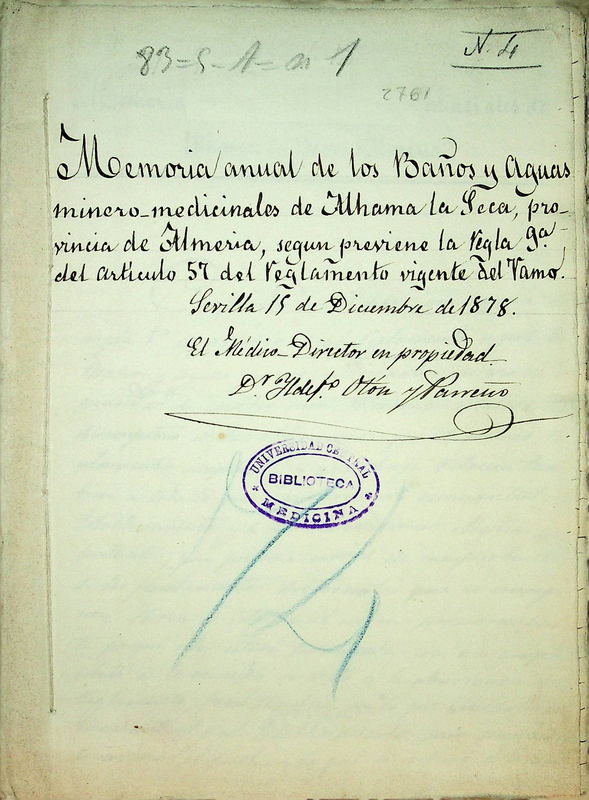 83=5-A=nº 1
N. 4
2761
Memoria anual de los Baños y Aguas
minero-medicinales de Alhama la Seca, pro-
vincia de Almeria, segun previene la regla 9ª
del articulo 57 del reglamento vigente del ramo.
Sevilla 15 de Diciembre de 1878.
El Médico-Director en propiedad
Dr. Yldef.º Otón y Parreño
UNIVERSIDAD CENTRAL
BIBLIOTECA
MEDICINA